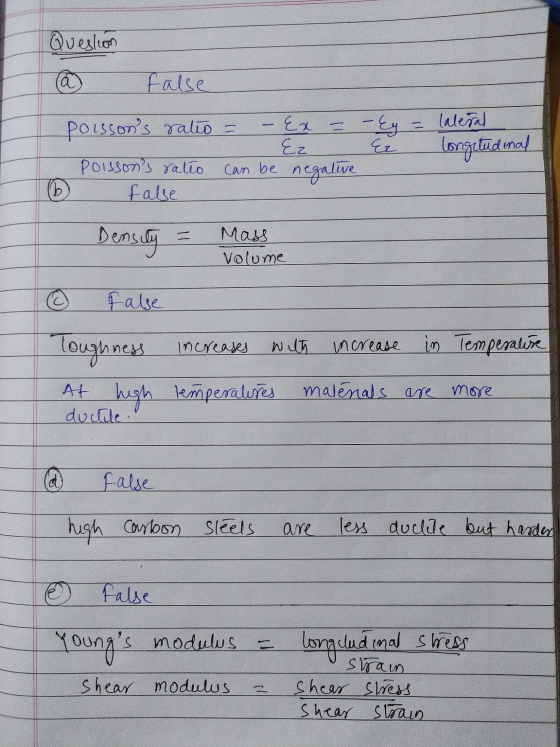 Question
(a) False
Poisson's ratio = -εx/εz = -εy/εz = lateral/longitudinal
Poisson's ratio can be negative
(b) False
Density = Mass/Volume
(c) False
Toughness increases with increase in Temperature
At high temperatures materials are more
ductile.
(d) False
high carbon steels are less ductile but harder
(e) False
Young's modulus = longitudinal stress/strain
Shear modulus = shear stress/shear strain